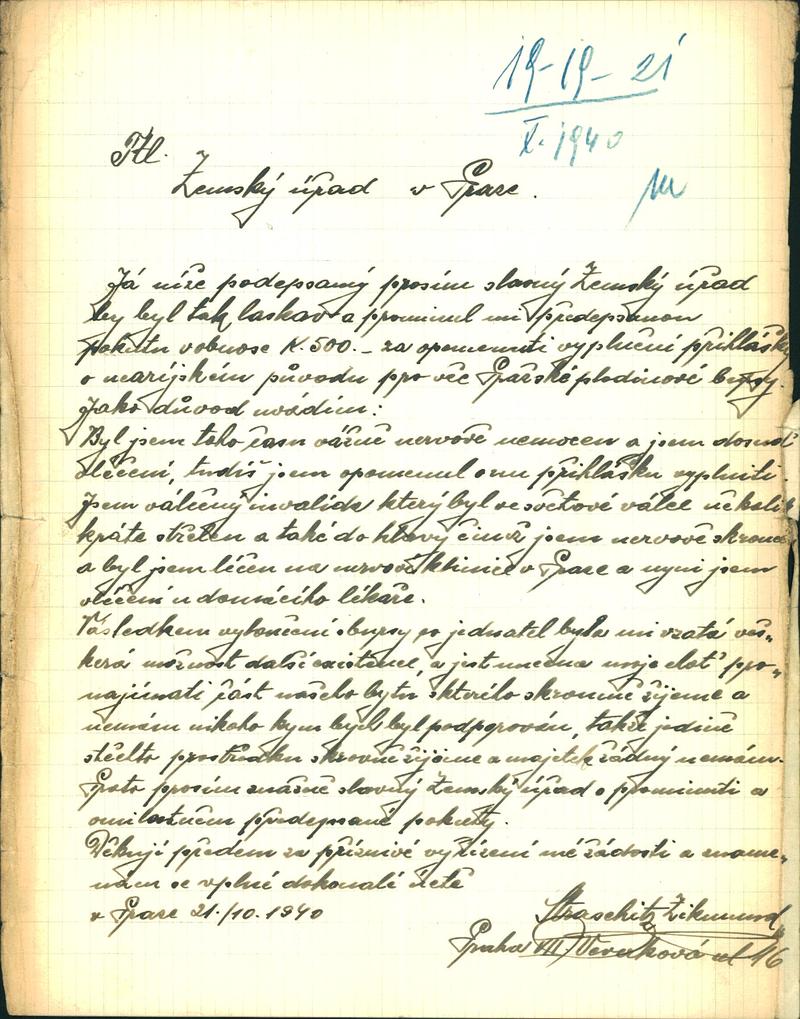 19-19-21
X. 1940
Ttl.
Zemský úřad v Praze.
Já níže podepsaný prosím slavný Zemský úřad
by byl tak laskav a prominul mi předepsanou
pokutu vobnose K. 500.- za opomenutí vyplnění přihlášky
o nearijském původu pro věc Pražské plodinové bursy.
Jako důvod uvádím:
Byl jsem toho času vážně nervově nemocen a jsem dosud
vléčení, tudíš jsem opomenul onu přihlášku vyplniti.
Jsem válečný invalida který byl ve světové válce několik
kráte střelen a také do hlavy čímž jsem nervově
a byl jsem léčen na nervové klinice v Praze a nyní jsem
vléčení u domácího lékaře.
Následkem vyloučení sbursy co jednatel byla mi vzatá veš-
kerá možnost další existence, a jest nucena moje choť pro-
najímati část našeho bytu skterého skromně žijeme a
nemám nikoho kým bych byl podporován, takže jedině
stěchto prostředku skrovně žijeme a majetek žádný nemám.
Proto prosím snažně slavný Zemský úřad o prominutí a
omilostnění předepsané pokuty.
Děkuji předem za příznivé vyřízení mé žádosti a zname-
nám se vplné dokonalé úctě
v Praze 21./10. 1940
Straschitz Zikmund
Praha VII, Veverková ul 16